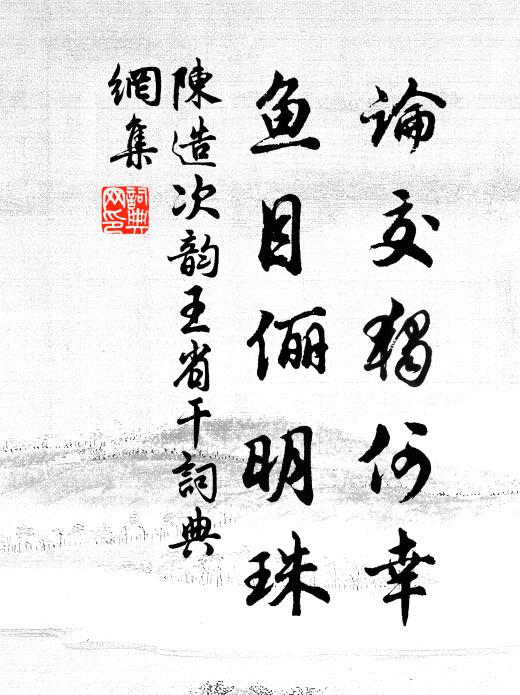 論交獨何幸
魚目儷明珠
陳造次韵王省干詞典
網集
詞典網印